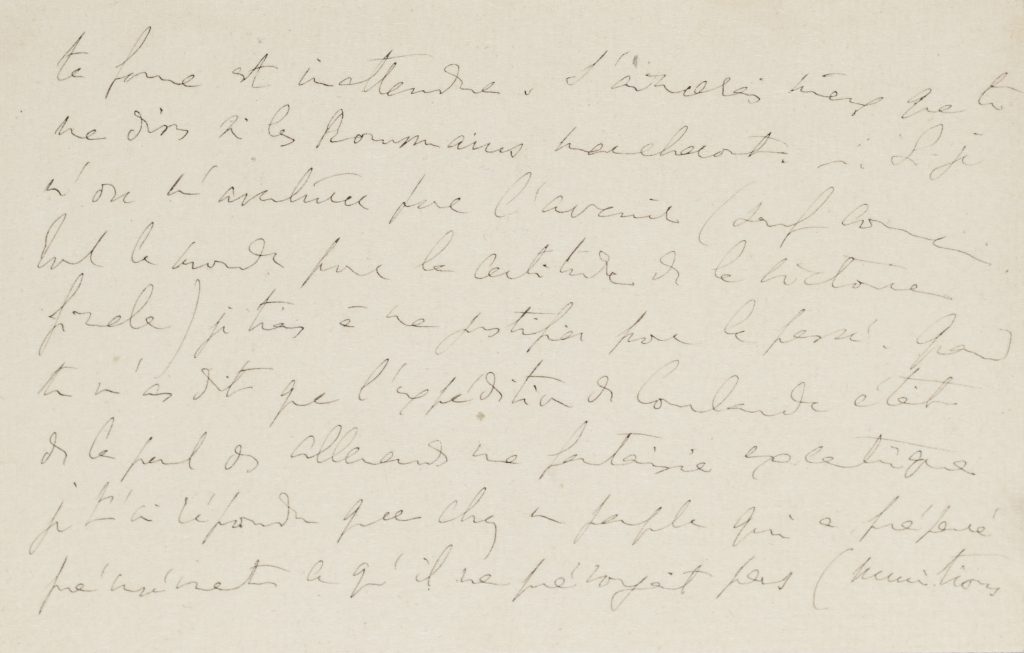 ta forme est inattendue. J'aimerais mieux que tu
me dises si les Roumains marcheront. ... Si je
n'ose m'aventurer pour l'avenir (sauf comme
tout le monde pour la certitude de la victoire
finale) je tiens à me justifier pour le passé. Quand
tu m'as dit que l'expédition de Courlande était
de la part des allemands une fantaisie excentrique
je t'ai répondu que chez un peuple qui a préparé
précisément ce qu'il ne prévoyait pas (munitions